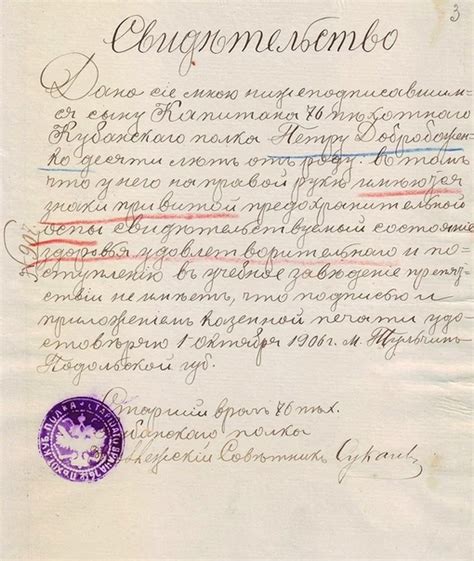 3
Свидѣтельство
Дано сіе мною нижеподписавшим-
ся сыну Капитана 76 пѣхотнаго
Кубанскаго полка Петру Доброборжен-
ко десяти лѣтъ отъ роду въ томъ
что у него на правой рукѣ имѣются
знаки привитой предохранительной
оспы свидѣтельствуемый состояніе
здоровья удовлетворительнаго и по-
ступленію въ учебное заведеніе препят-
ствій не имѣетъ, что подписью и
приложеніемъ казенной печати удо-
стовѣряю 1 октября 1906 г. м. Тульчинъ
Подольской губ.
Старшій врачъ 76 пѣх.
Кубанскаго полка
Совѣтникъ Сукачев